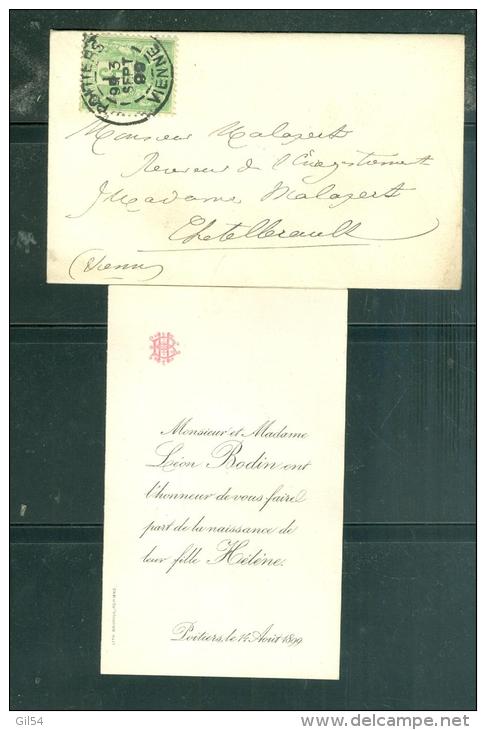 POITIERS
19 3
1 SEPT 1
99
VIENNE
Monsieur Malapert
Receveur de l'Enregistrement
Madame Malapert
Chatellerault
(Vienne)
Monsieur et Madame
Léon Bodin ont
l'honneur de vous faire
part de la naissance de
leur fille Hélène.
Poitiers, le 14 Août 1899
Gil54
www.delcampe.net